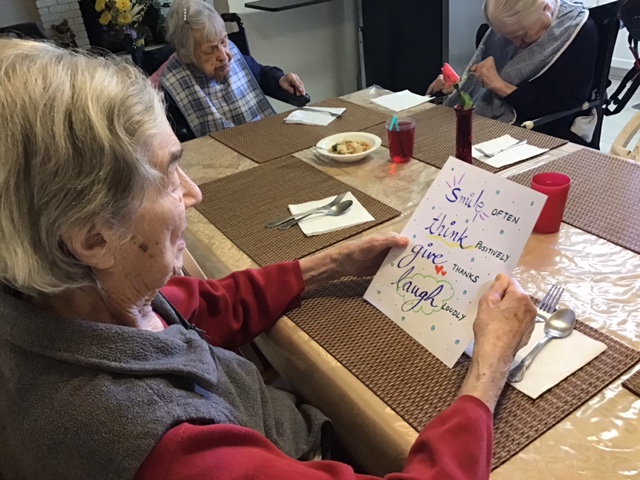 Smile OFTEN
think POSITIVELY
give THANKS
laugh LOUDLY